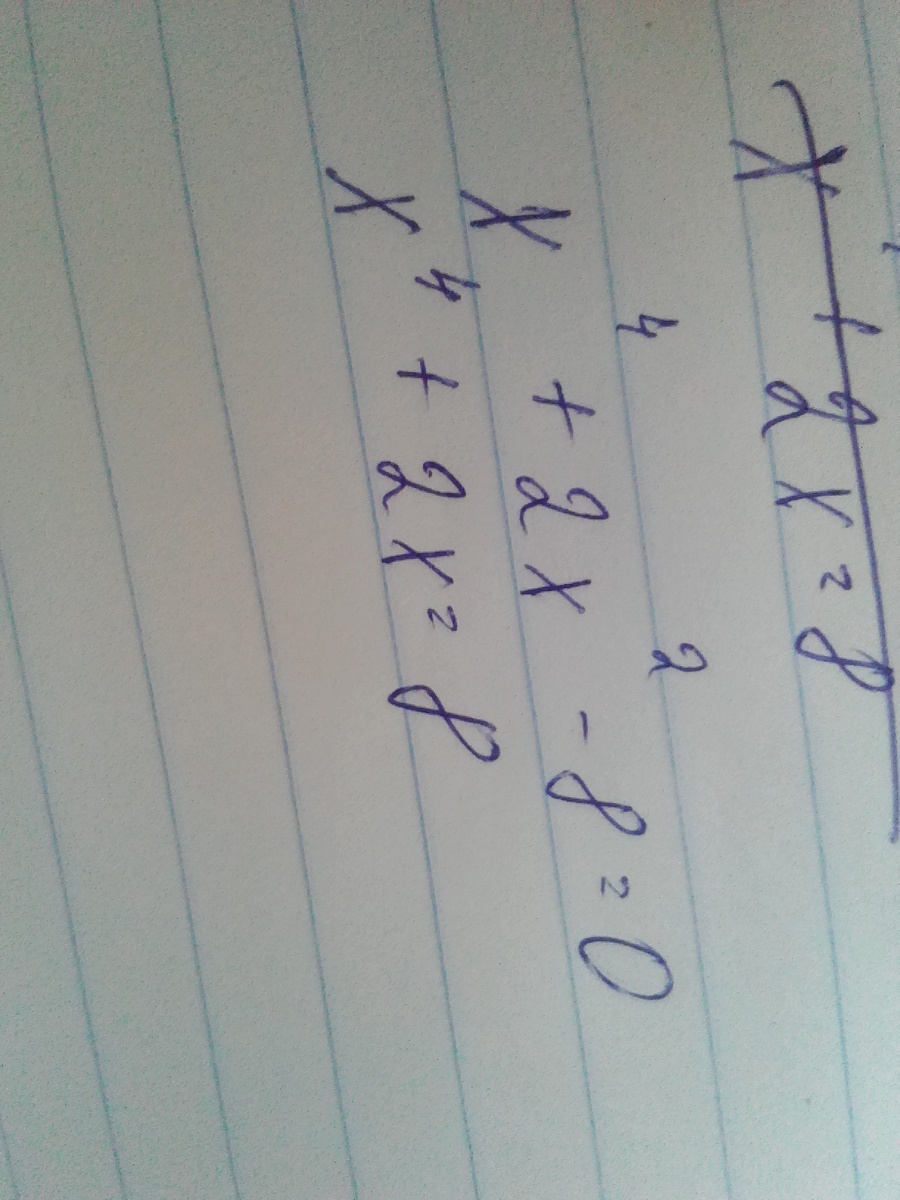 x + 2x = 8
x⁴ + 2x² - 8 = 0
x⁴ + 2x = 8